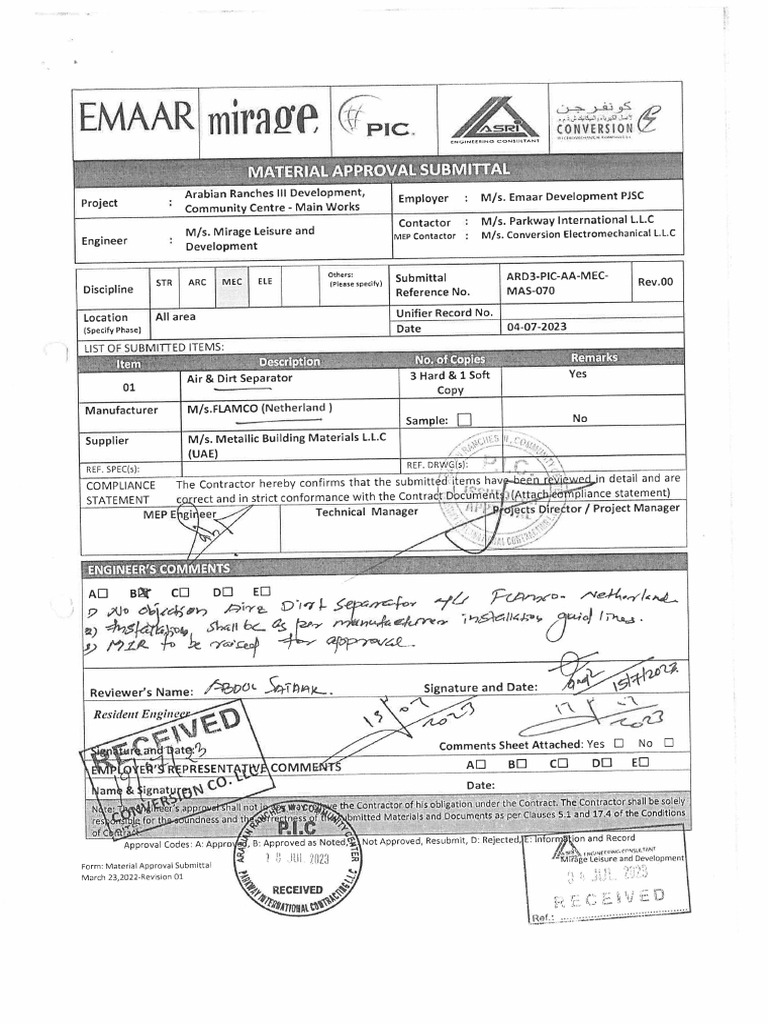 EMAAR
mirage
PIC
ASRI
ENGINEERING CONSULTANT
كونفرجن
CONVERSION
MATERIAL APPROVAL SUBMITTAL
Project : Arabian Ranches III Development, Community Centre - Main Works
Employer : M/s. Emaar Development PJSC
Engineer : M/s. Mirage Leisure and Development
Contactor : M/s. Parkway International L.L.C
MEP Contactor : M/s. Conversion Electromechanical L.L.C
Discipline STR ARC MEC ELE Others: (Please specify)
Submittal Reference No. ARD3-PIC-AA-MEC-MAS-070 Rev.00
Location (Specify Phase) All area
Unifier Record No.
Date 04-07-2023
LIST OF SUBMITTED ITEMS:
Item Description No. of Copies Remarks
01 Air & Dirt Separator 3 Hard & 1 Soft Copy Yes
Manufacturer M/s.FLAMCO (Netherland ) Sample: No
Supplier M/s. Metallic Building Materials L.L.C (UAE)
REF. SPEC(s): REF. DRWG(s):
COMPLIANCE STATEMENT The Contractor hereby confirms that the submitted items have been reviewed in detail and are correct and in strict conformance with the Contract Documents (Attach compliance statement)
MEP Engineer Technical Manager Projects Director / Project Manager
ENGINEER'S COMMENTS
A B C D E
1) No objection Dirt Separator FLAMCO- Netherland
2) Installation, shall be as per manufacturer installation guid lines.
3) MIR to be raised for approval.
Reviewer's Name: ABDUL SATHAR. Signature and Date: 15/7/2023
Resident Engineer
13/07/2023
17/07/2023
Signature and Date:
Comments Sheet Attached: Yes No
EMPLOYER'S REPRESENTATIVE COMMENTS A B C D E
Name & Signature: Date:
RECEIVED
CONVERSION CO. LLC
Note: The Engineer's approval shall not in any way relieve the Contractor of his obligation under the Contract. The Contractor shall be solely
responsible for the soundness and the correctness of the submitted Materials and Documents as per Clauses 5.1 and 17.4 of the Conditions
of Contract.
Approval Codes: A: Approved, B: Approved as Noted, C: Not Approved, Resubmit, D: Rejected, E: Information and Record
Form: Material Approval Submittal
March 23,2022-Revision 01
ARABIAN RANCHES COMMUNITY CENTER
P.I.C
18 JUL 2023
RECEIVED
PARKWAY INTERNATIONAL CONTRACTING LLC
ENGINEERING CONSULTANT
Mirage Leisure and Development
JUL 2023
RECEIVED
Ref.: